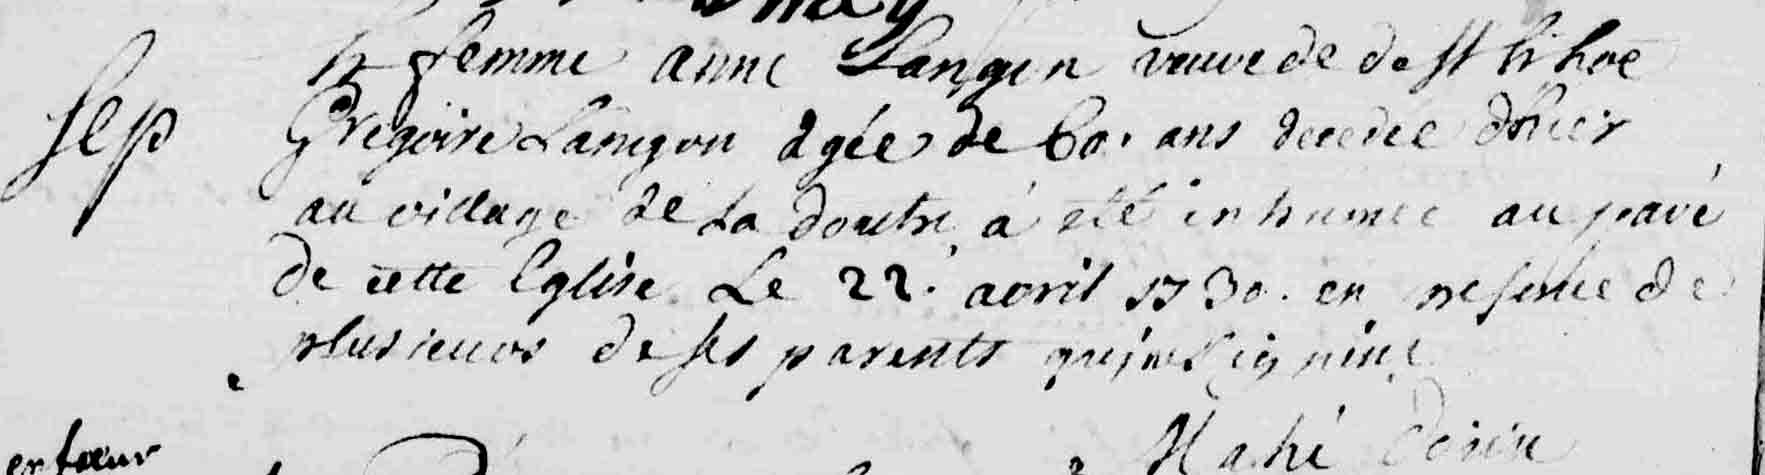 h femme anne Langon veuve de deft h hoē
Sep
Gregoire Langon agée de 60. ans decedée d'hier
au village de La doutre, à été inhumée au pavé
de cette Eglise. Le 22. avril 1730. en presence de
plusieurs de ses parents qui ne signent
Mahé